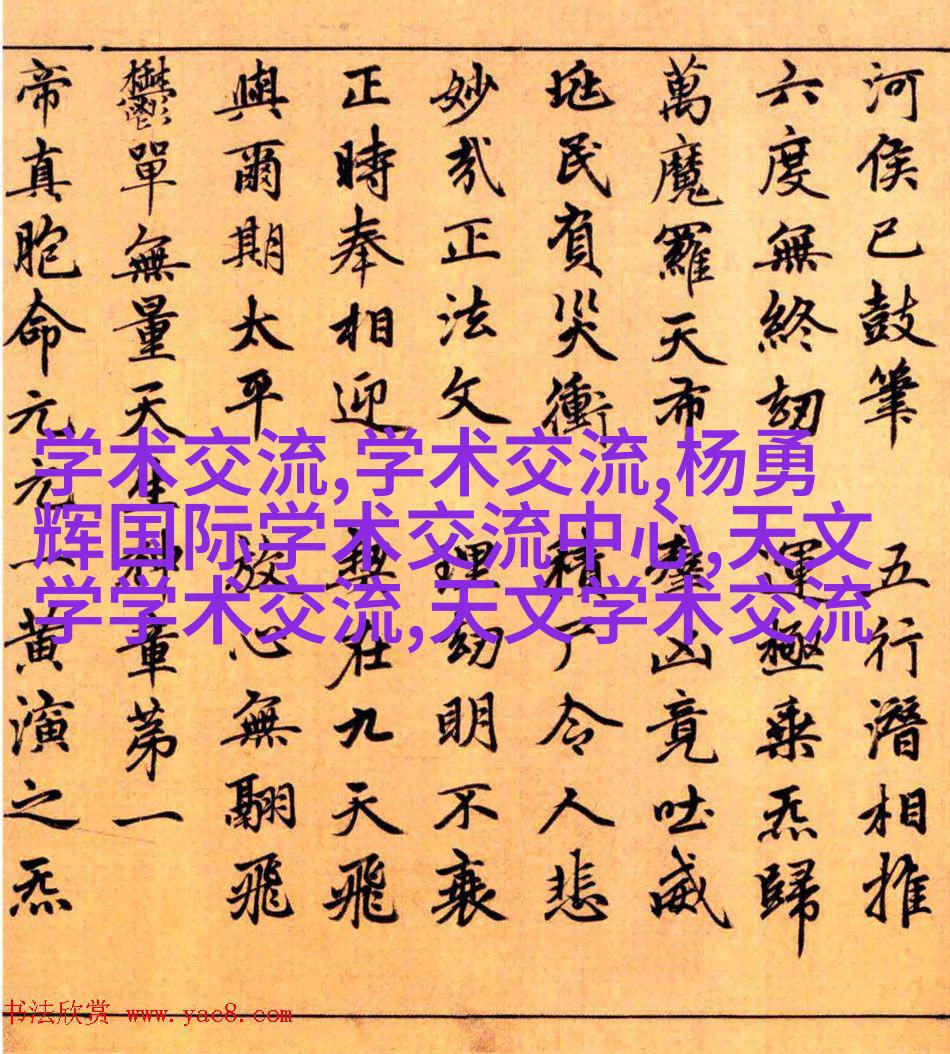 河侯已鼓筆 五行潛相推
六度無終劫 運極乘炁歸
萬魔羅天布 羣凶竟吐威
民有災衝 積令人悲
妙哉正法文 理幼明不衰
正時奉相迎 在九天飛
輿爾期太平 放心無翮飛
鬱單無量天生神章第一
帝真胞命元元一黄演之炁
学术交流,学术交流,杨勇
辉国际学术交流中心,天文
学学术交流,天文学术交流
书法欣赏 www.yac8.com